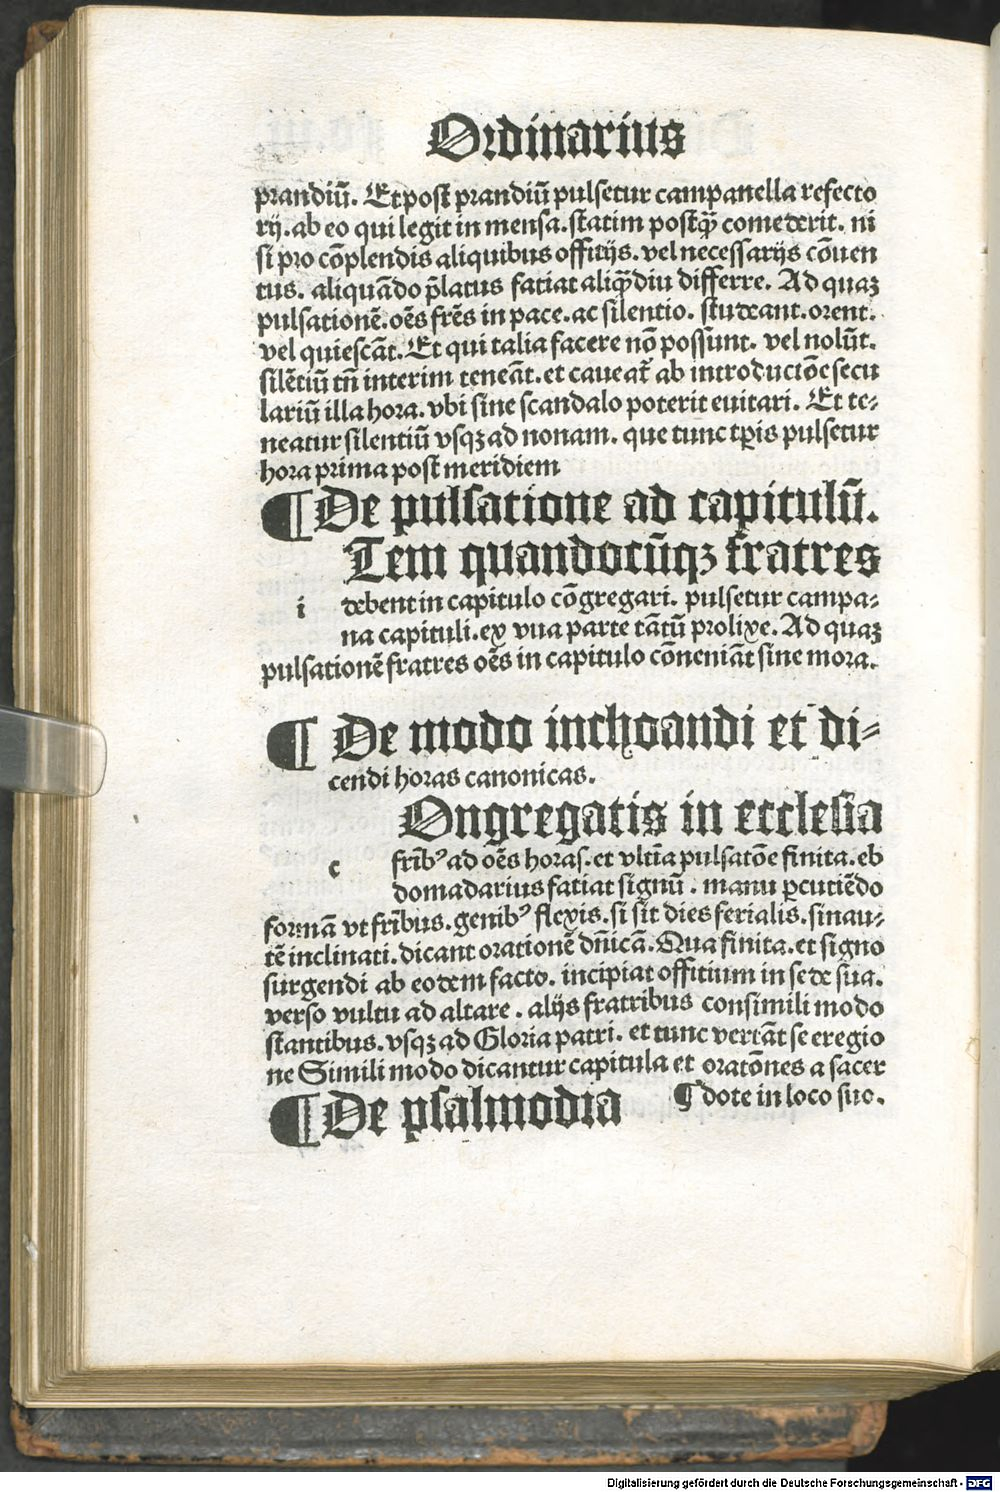 Ordinarius
prandiū. Et post̄ prandiū pulsetur campanella refecto
rij. ab eo qui legit in mensa. statim postq̄ȝ comederit. ni
si pro cōplendis aliquibus offitijs. vel necessarijs cōuen
tus. aliquādo p̄latus fatiat aliq̄diu differre. Ad quaȝ
pulsationē. oēs frēs in pace. ac silentio. studeant. orent.
vel quiescāt. Et qui talia facere nō possunt. vel nolūt.
silētiū tn̄ interim teneāt. et caueat̄ ab introductōe secu
lariū illa hora. vbi sine scandalo poterit euitari. Et te⸗
neatur silentiū vsqȝ ad nonam. que tunc tꝑis pulsetur
hora prima post̄ meridiem
¶ De pulsatione ad capitulū.
Tem quandocūqȝ fratres
i debent in capitulo cōgregari. pulsetur campa⸗
na capituli. ex vna parte tātū prolixe. Ad quaȝ
pulsationē fratres oēs in capitulo cōueniāt sine mora.
¶ De modo inchoandi et di⸗
cendi horas canonicas.
Ongregatis in ecclesia
c fr̄ibꝰ ad oēs horas. et vltīa pulsatōe finita. eb
domadarius fatiat signū. manu ꝑcutiēdo
formā vt fr̄ibus. genibꝰ flexis. si sit dies ferialis. sinau⸗
tē inclinati. dicant orationē dn̄icā. Qua finita. et signo
surgendi ab eodem facto. incipiat offitium in sede sua.
verso vultu ad altare. alijs fratribus consimili modo
stantibus. vsqȝ ad Gloria patri. et tunc vertāt se eregio
ne Simili modo dicantur capitula et oratōnes a sacer
¶ dote in loco suo.
¶ De psalmodia
Digitalisierung gefördert durch die Deutsche Forschungsgemeinschaft - DFG